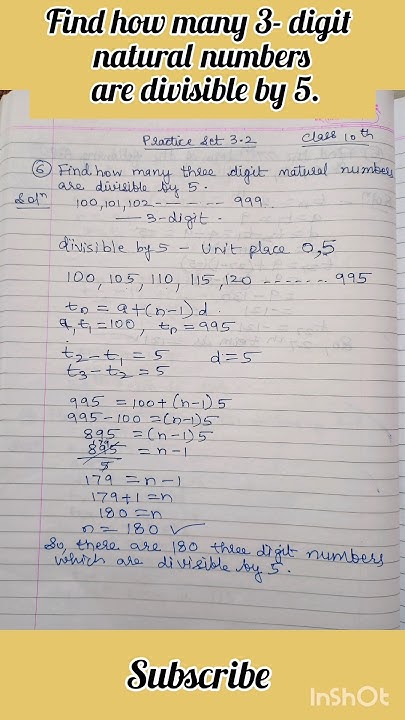 Find how many 3- digit
natural numbers
are divisible by 5.
Practice Set 3.2 Class 10th
⑥ Find how many three digit natural numbers
are divisible by 5.
Solⁿ 100, 101, 102 - - - - - - 999.
3-digit.
divisible by 5 - Unit place 0,5
100, 105, 110, 115, 120 ........ 995
tn = a+(n-1)d.
a, t₁=100, tn=995
t₂-t₁ = 5 d=5
t₃-t₂ = 5
995 = 100+(n-1)5
995-100 =(n-1)5
895 =(n-1)5
179
895 = n-1
5
179 =n-1
179+1=n
180=n
n = 180 ✓
So, there are 180 three digit numbers
which are divisible by 5.
Subscribe
InShOt